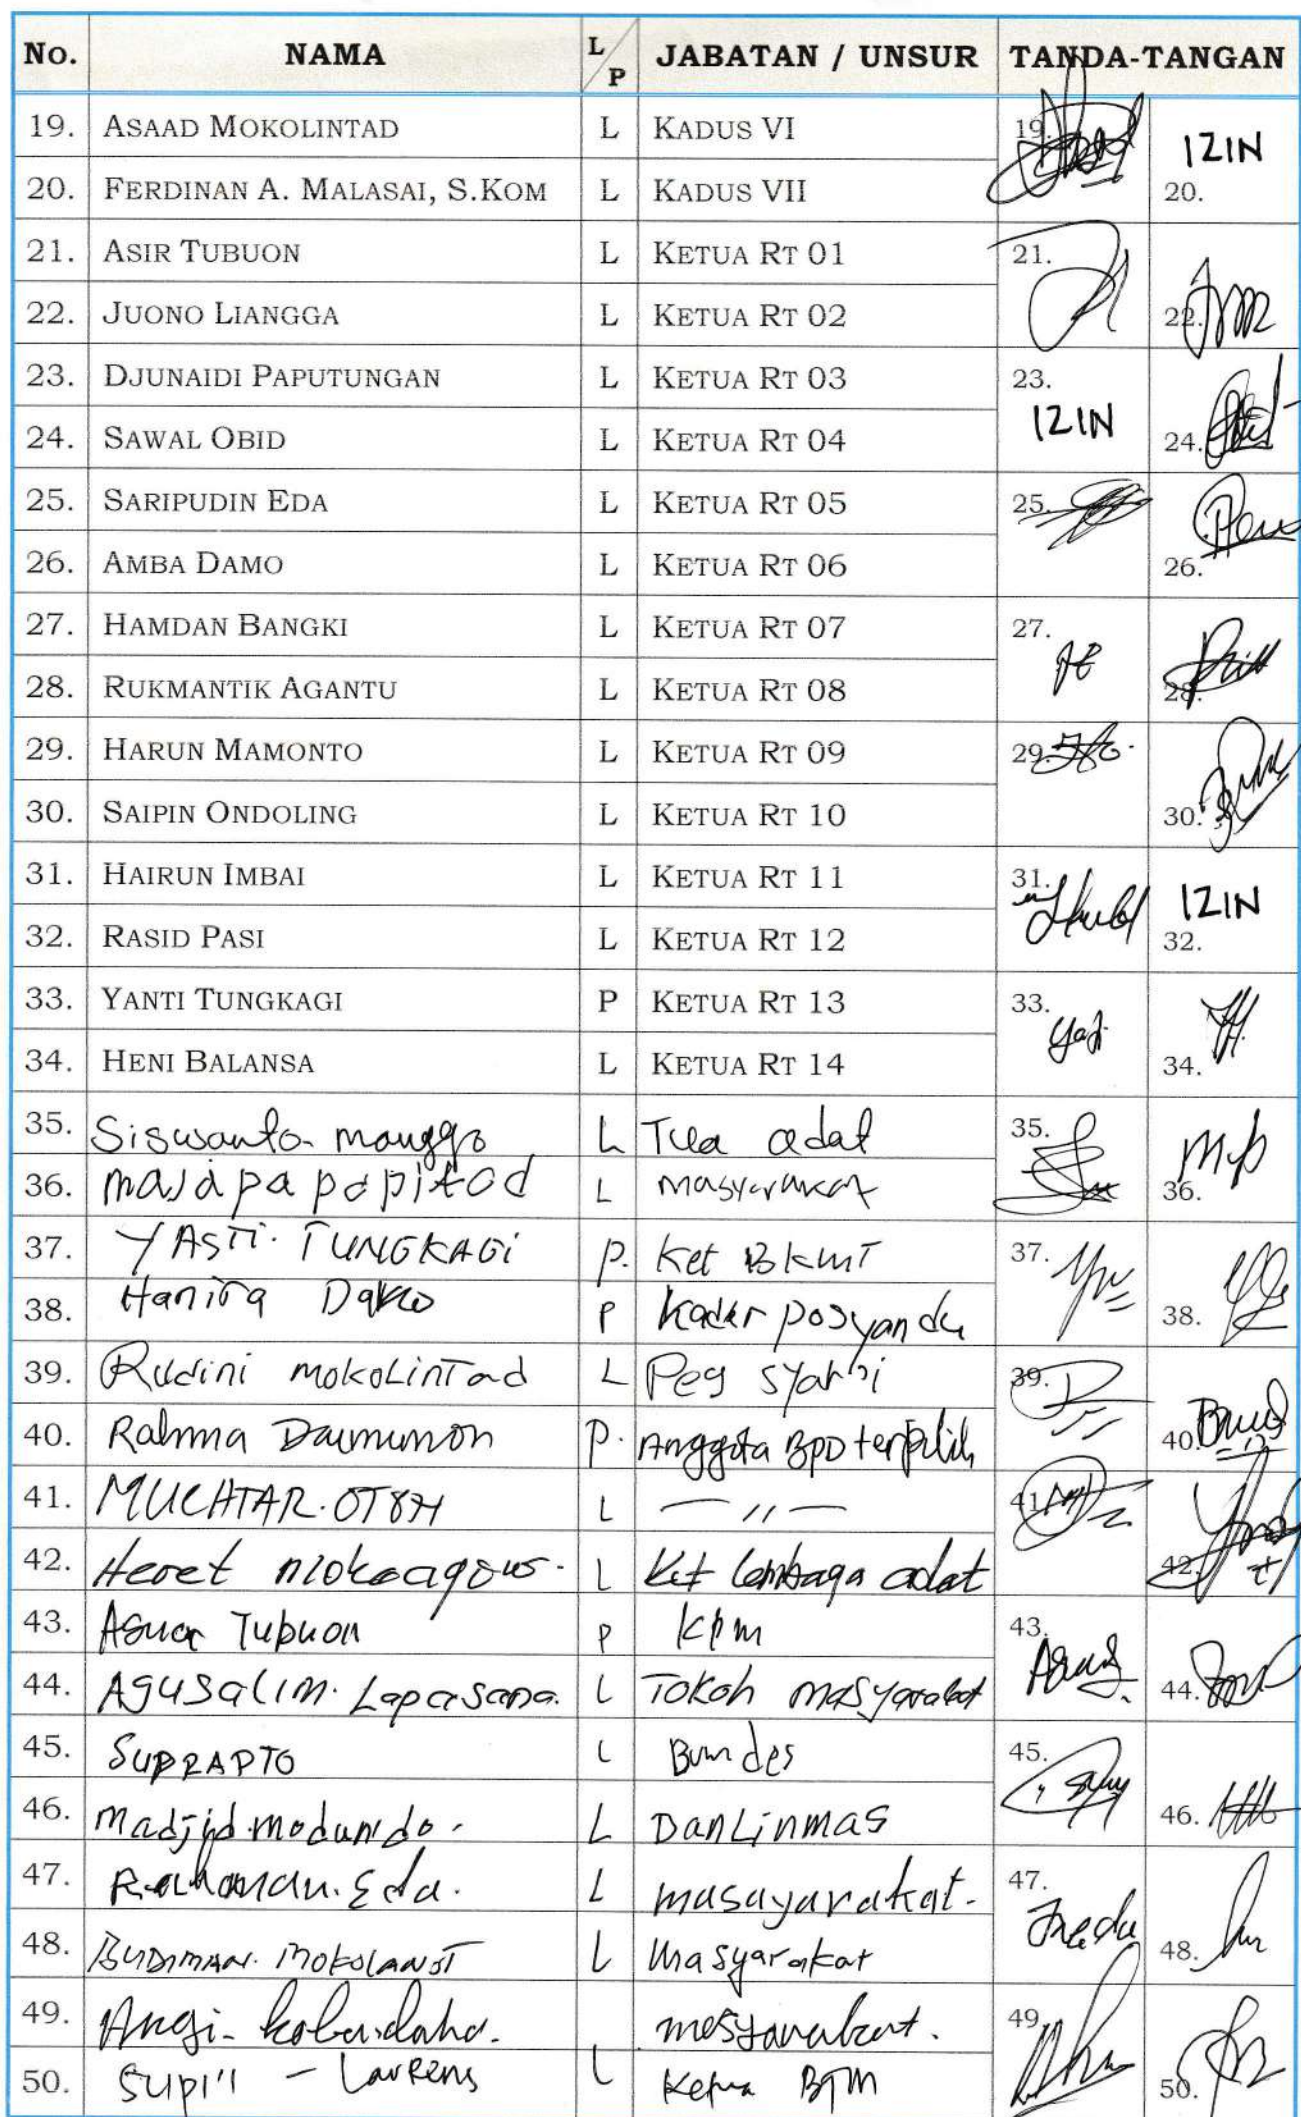 No. NAMA L/P JABATAN / UNSUR TANDA-TANGAN
19. ASAAD MOKOLINTAD L KADUS VI 19.
20. FERDINAN A. MALASAI, S.KOM L KADUS VII IZIN 20.
21. ASIR TUBUON L KETUA RT 01 21.
22. JUONO LIANGGA L KETUA RT 02 22.
23. DJUNAIDI PAPUTUNGAN L KETUA RT 03 23. IZIN
24. SAWAL OBID L KETUA RT 04 24.
25. SARIPUDIN EDA L KETUA RT 05 25.
26. AMBA DAMO L KETUA RT 06 26.
27. HAMDAN BANGKI L KETUA RT 07 27.
28. RUKMANTIK AGANTU L KETUA RT 08 28.
29. HARUN MAMONTO L KETUA RT 09 29.
30. SAIPIN ONDOLING L KETUA RT 10 30.
31. HAIRUN IMBAI L KETUA RT 11 31.
32. RASID PASI L KETUA RT 12 IZIN 32.
33. YANTI TUNGKAGI P KETUA RT 13 33.
34. HENI BALANSA L KETUA RT 14 34.
35. Siswanto manggo L Tua adat 35.
36. masapa papitod L masyarakat 36.
37. YASTI. TUNGKAGI P. Ket BKMT 37.
38. Hanifa P Kader posyandu 38.
39. Rudini mokoLinTad L Peg syar'i 39.
40. Rahma Daumunon P. Anggota BPD terpilih 40.
41. MUCHTAR. L — 〃 — 41.
42. L Ket lembaga adat 42.
43. Tubuon P KPM 43.
44. AgUSaLIM. Lapasana. L Tokoh masyarakat 44.
45. SUPRAPTO L Bumdes 45.
46. madjid modundo. L DanLinmas 46.
47. Rahman. Eda. L masayarakat. 47.
48. BUDIMAN. L masyarakat 48.
49. Angi- 49.
50. Supi'i - Laurens L Ketua BTM 50.